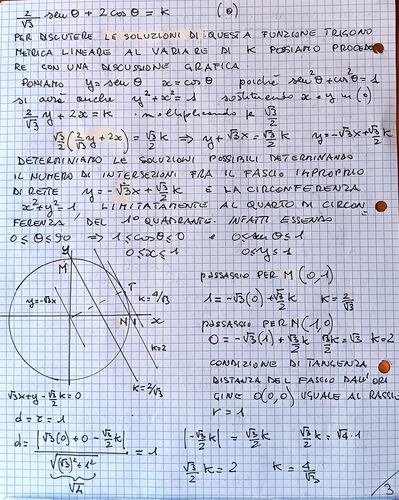 2/√3 senθ + 2cosθ = k (0)
PER DISCUTERE LE SOLUZIONI DI QUESTA FUNZIONE TRIGONO
METRICA LINEARE AL VARIARE DI K POSSIAMO PROCEDE
RE CON UNA DISCUSSIONE GRAFICA
PONIAMO y=senθ x=cosθ poiché sen²θ+cos²θ=1
si avrà anche y²+x²=1 sostituendo x e y in (0)
2/√3 y + 2x = k · moltiplicando per √3/2
√3/2 (2/√3 y + 2x) = √3/2 k ⇒ y+√3x = √3/2 k y=-√3x+√3/2 k
DETERMINIAMO LE SOLUZIONI POSSIBILI DETERMINANDO
IL NUMERO DI INTERSEZIONI FRA IL FASCIO IMPROPRIO
DI RETTE y=-√3x+√3/2 k E LA CIRCONFERENZA
x²+y²=1 LIMITATAMENTE AL QUARTO DI CIRCON
FERENZA DEL 1° QUADRANTE. INFATTI ESSENDO
0≤θ≤90 ⇒ 1≤cosθ≤0 e 0≤senθ≤1
0≤x≤1 0≤y≤1
y
M
T
y=-√3x
K=4/√3
N
x
K=2
K=2/√3
PASSAGGIO PER M(0,1)
1=-√3(0)+√3/2 k K=2/√3
PASSAGGIO PER N(1,0)
0=-√3(1)+√3/2 k √3/2 k=√3 K=2
CONDIZIONE DI TANGENZA
DISTANZA DEL FASCIO DALL'ORI
GINE O(0,0) UGUALE AL RAGGIO
r=1
√3x+y-√3/2 k=0
d=r=1
d = |√3(0)+0-√3/2 k| / √((√3)²+1²) = 1
√4
|-√3/2 k| = √3/2 k √3/2 k=√4·1
√3/2 k=2 K=4/√3
3